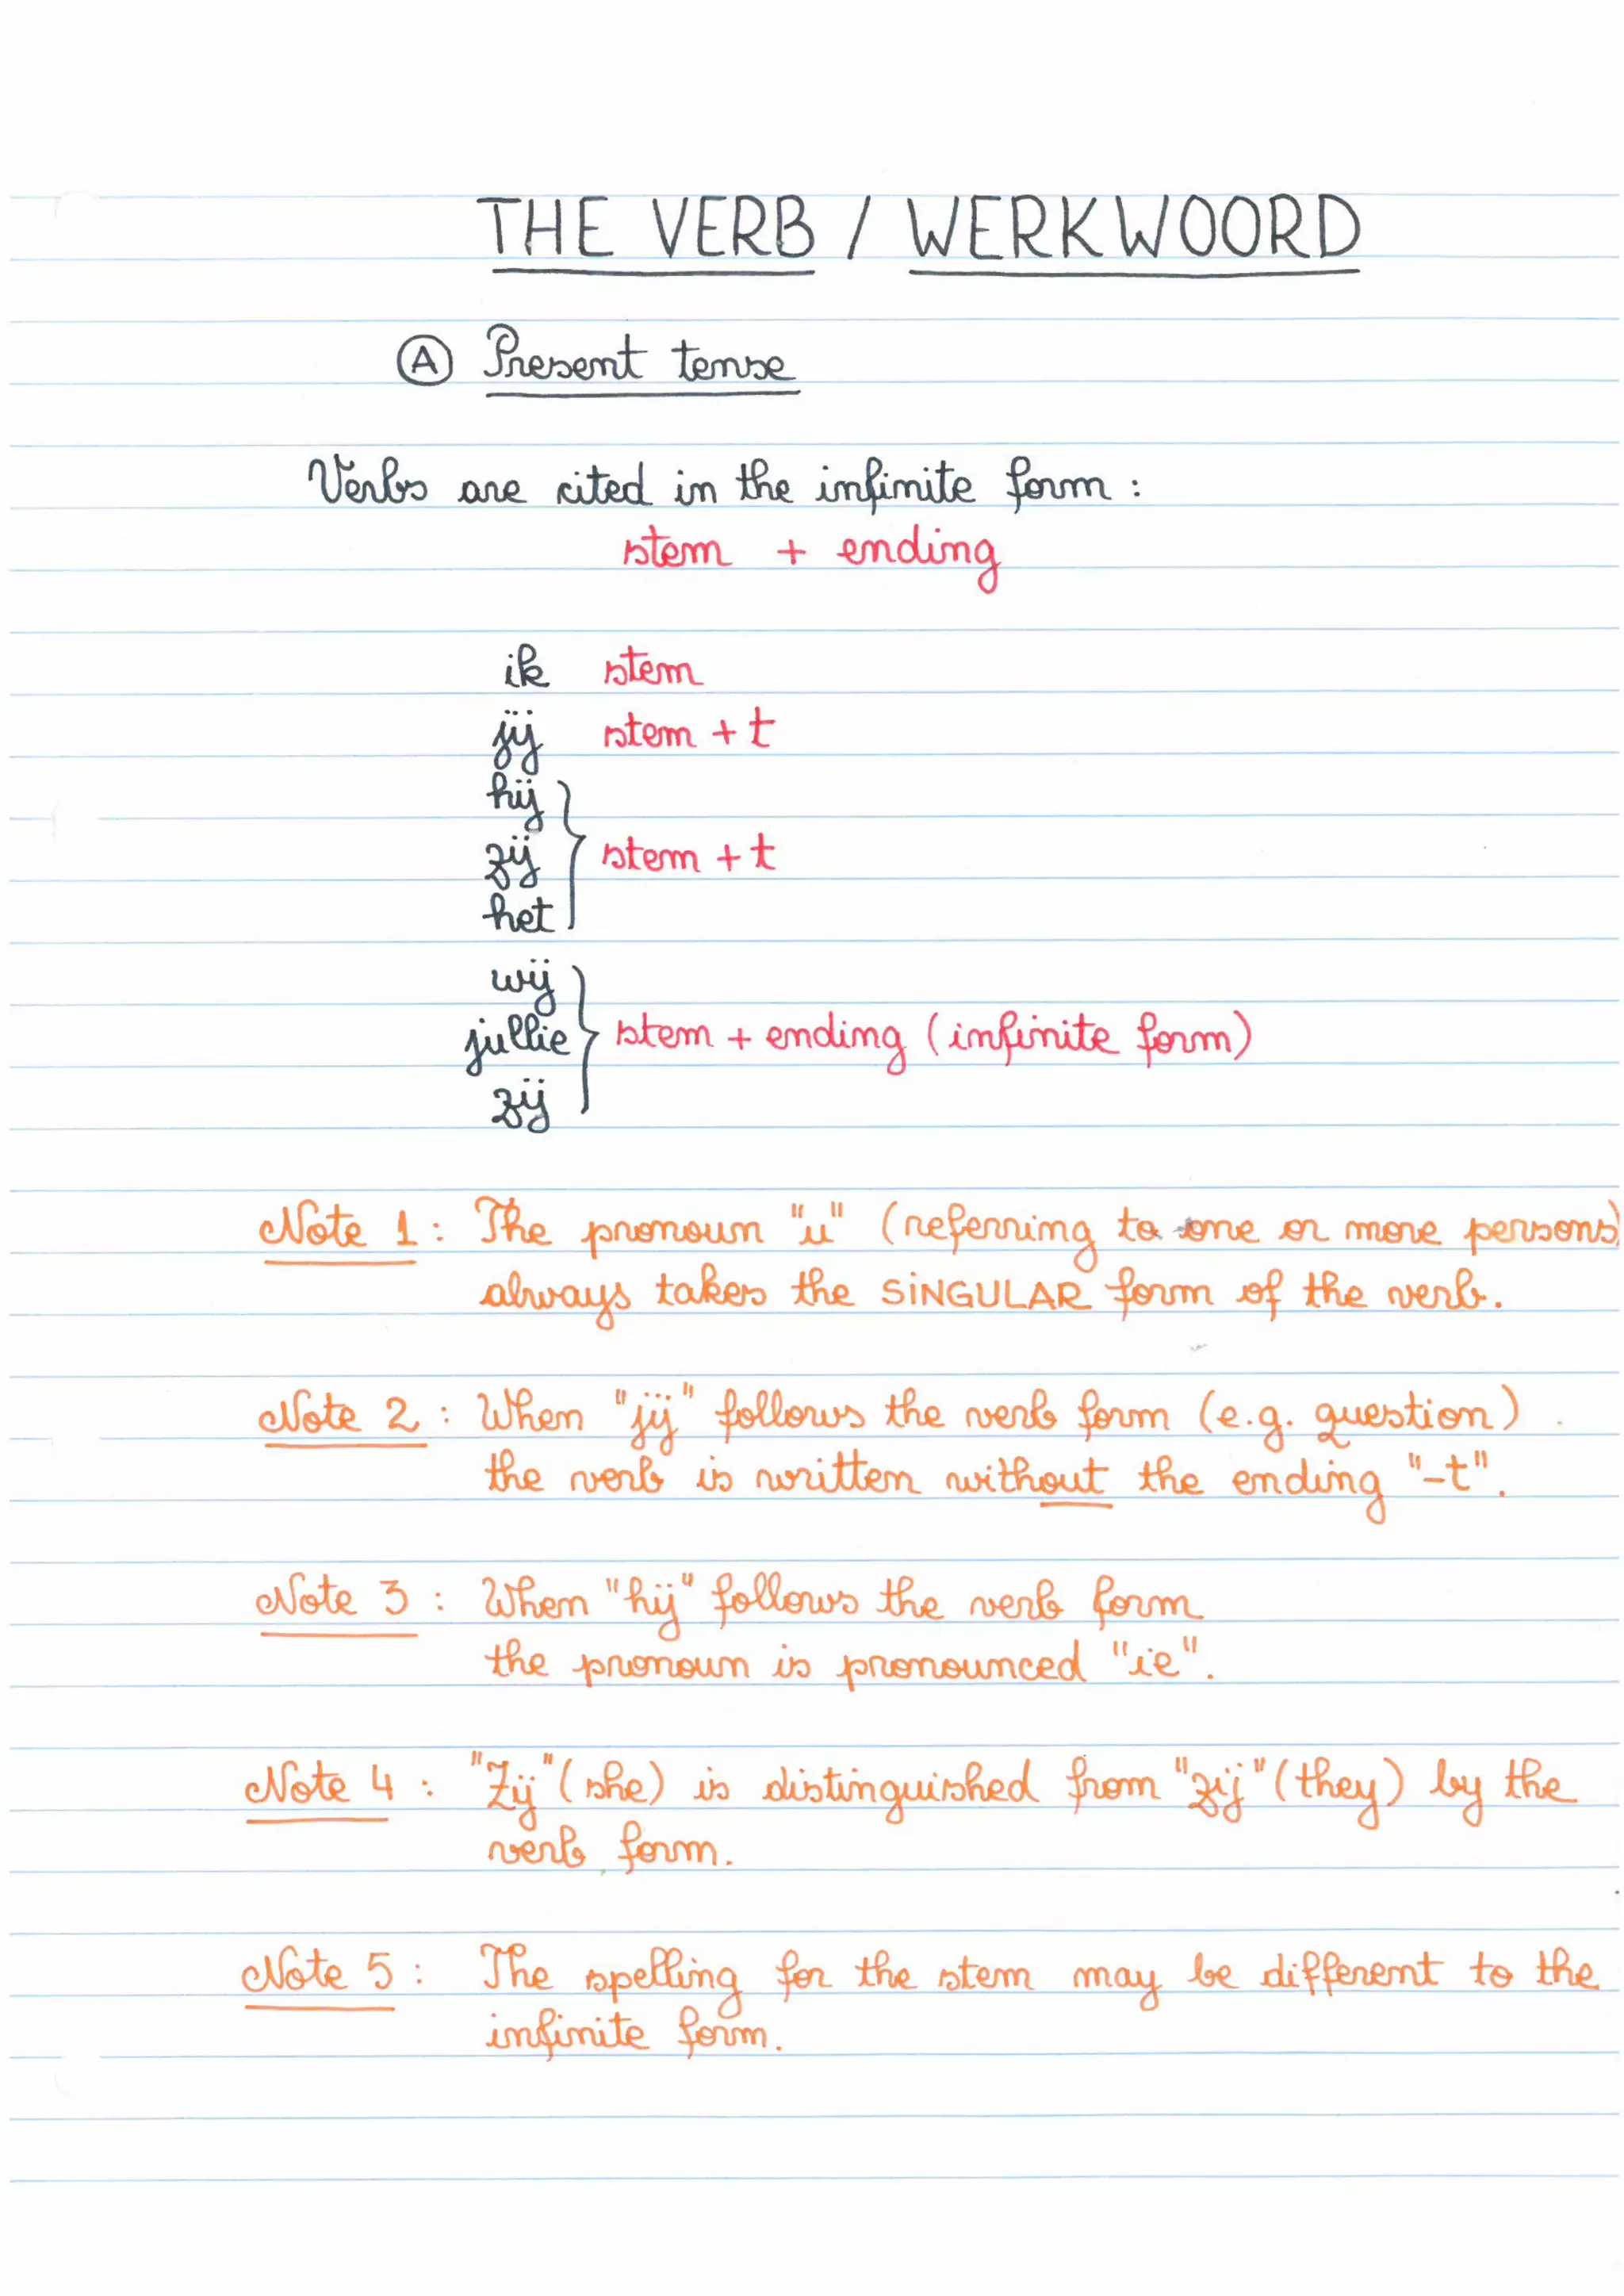 THE VERB / WERKWOORD
Ⓐ Present tense
Verbs are cited in the infinite form :
stem + ending
ik stem
jij stem + t
hij
zij stem + t
het
wij
jullie stem + ending (infinite form)
zij
Note 1 : The pronoun "u" (referring to one or more persons)
always takes the SINGULAR form of the verb.
Note 2 : When "jij" follows the verb form (e.g. question)
the verb is written without the ending "-t".
Note 3 : When "hij" follows the verb form
the pronoun is pronounced "ie".
Note 4 : "Zij" (she) is distinguished from "zij" (they) by the
verb form.
Note 5 : The spelling for the stem may be different to the
infinite form.